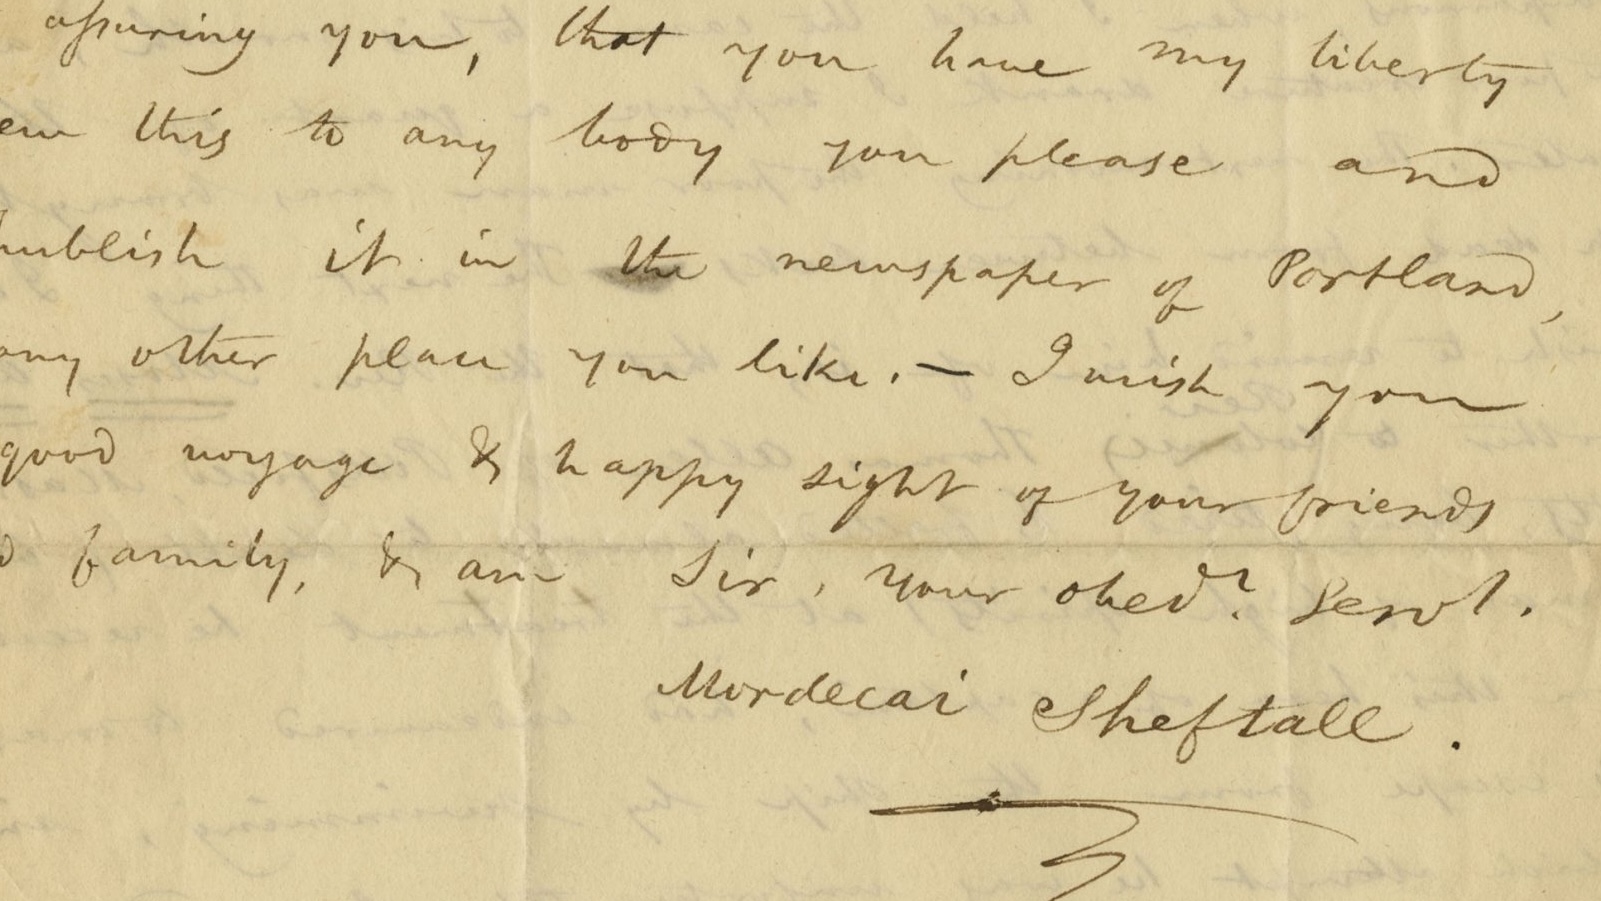 assuring you, that you have my liberty
ew this to any body you please and
publish it in the newspaper of Portland,
any other place you like. — I wish you
good voyage & happy sight of your friends
d family, & am Sir, your obedt. Servt.
Mordecai Sheftall.